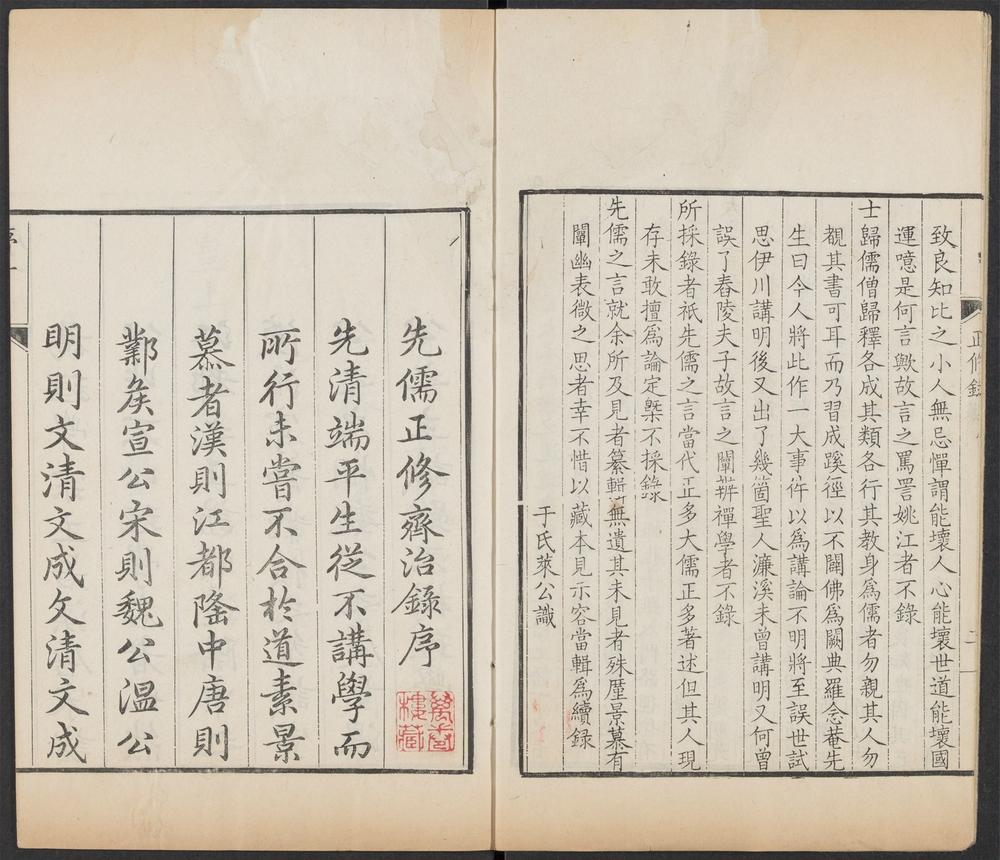 正修錄
二
致良知比之小人無忌憚謂能壞人心能壞世道能壞國
運噫是何言歟故言之罵詈姚江者不錄
士歸儒僧歸釋各成其類各行其教身爲儒者勿親其人勿
覩其書可耳而乃習成蹊徑以不闢佛爲闕典羅念菴先
生曰今人將此作一大事件以爲講論不明將至誤世試
思伊川講明後又出了幾箇聖人濂溪未曾講明又何曾
誤了舂陵夫子故言之闢辨禪學者不錄
所採錄者祇先儒之言當代正多大儒正多著述但其人現
存未敢擅爲論定槩不採錄
先儒之言就余所及見者纂輯無遺其未見者殊厪景慕有
闡幽表微之思者幸不惜以藏本見示容當輯爲續錄
于氏萊公識
先儒正修齊治錄序
萬卷樓藏
先清端平生從不講學而
所行未嘗不合於道素景
慕者漢則江都隆中唐則
鄴侯宣公宋則魏公溫公
明則文清文成文清文成
序
一